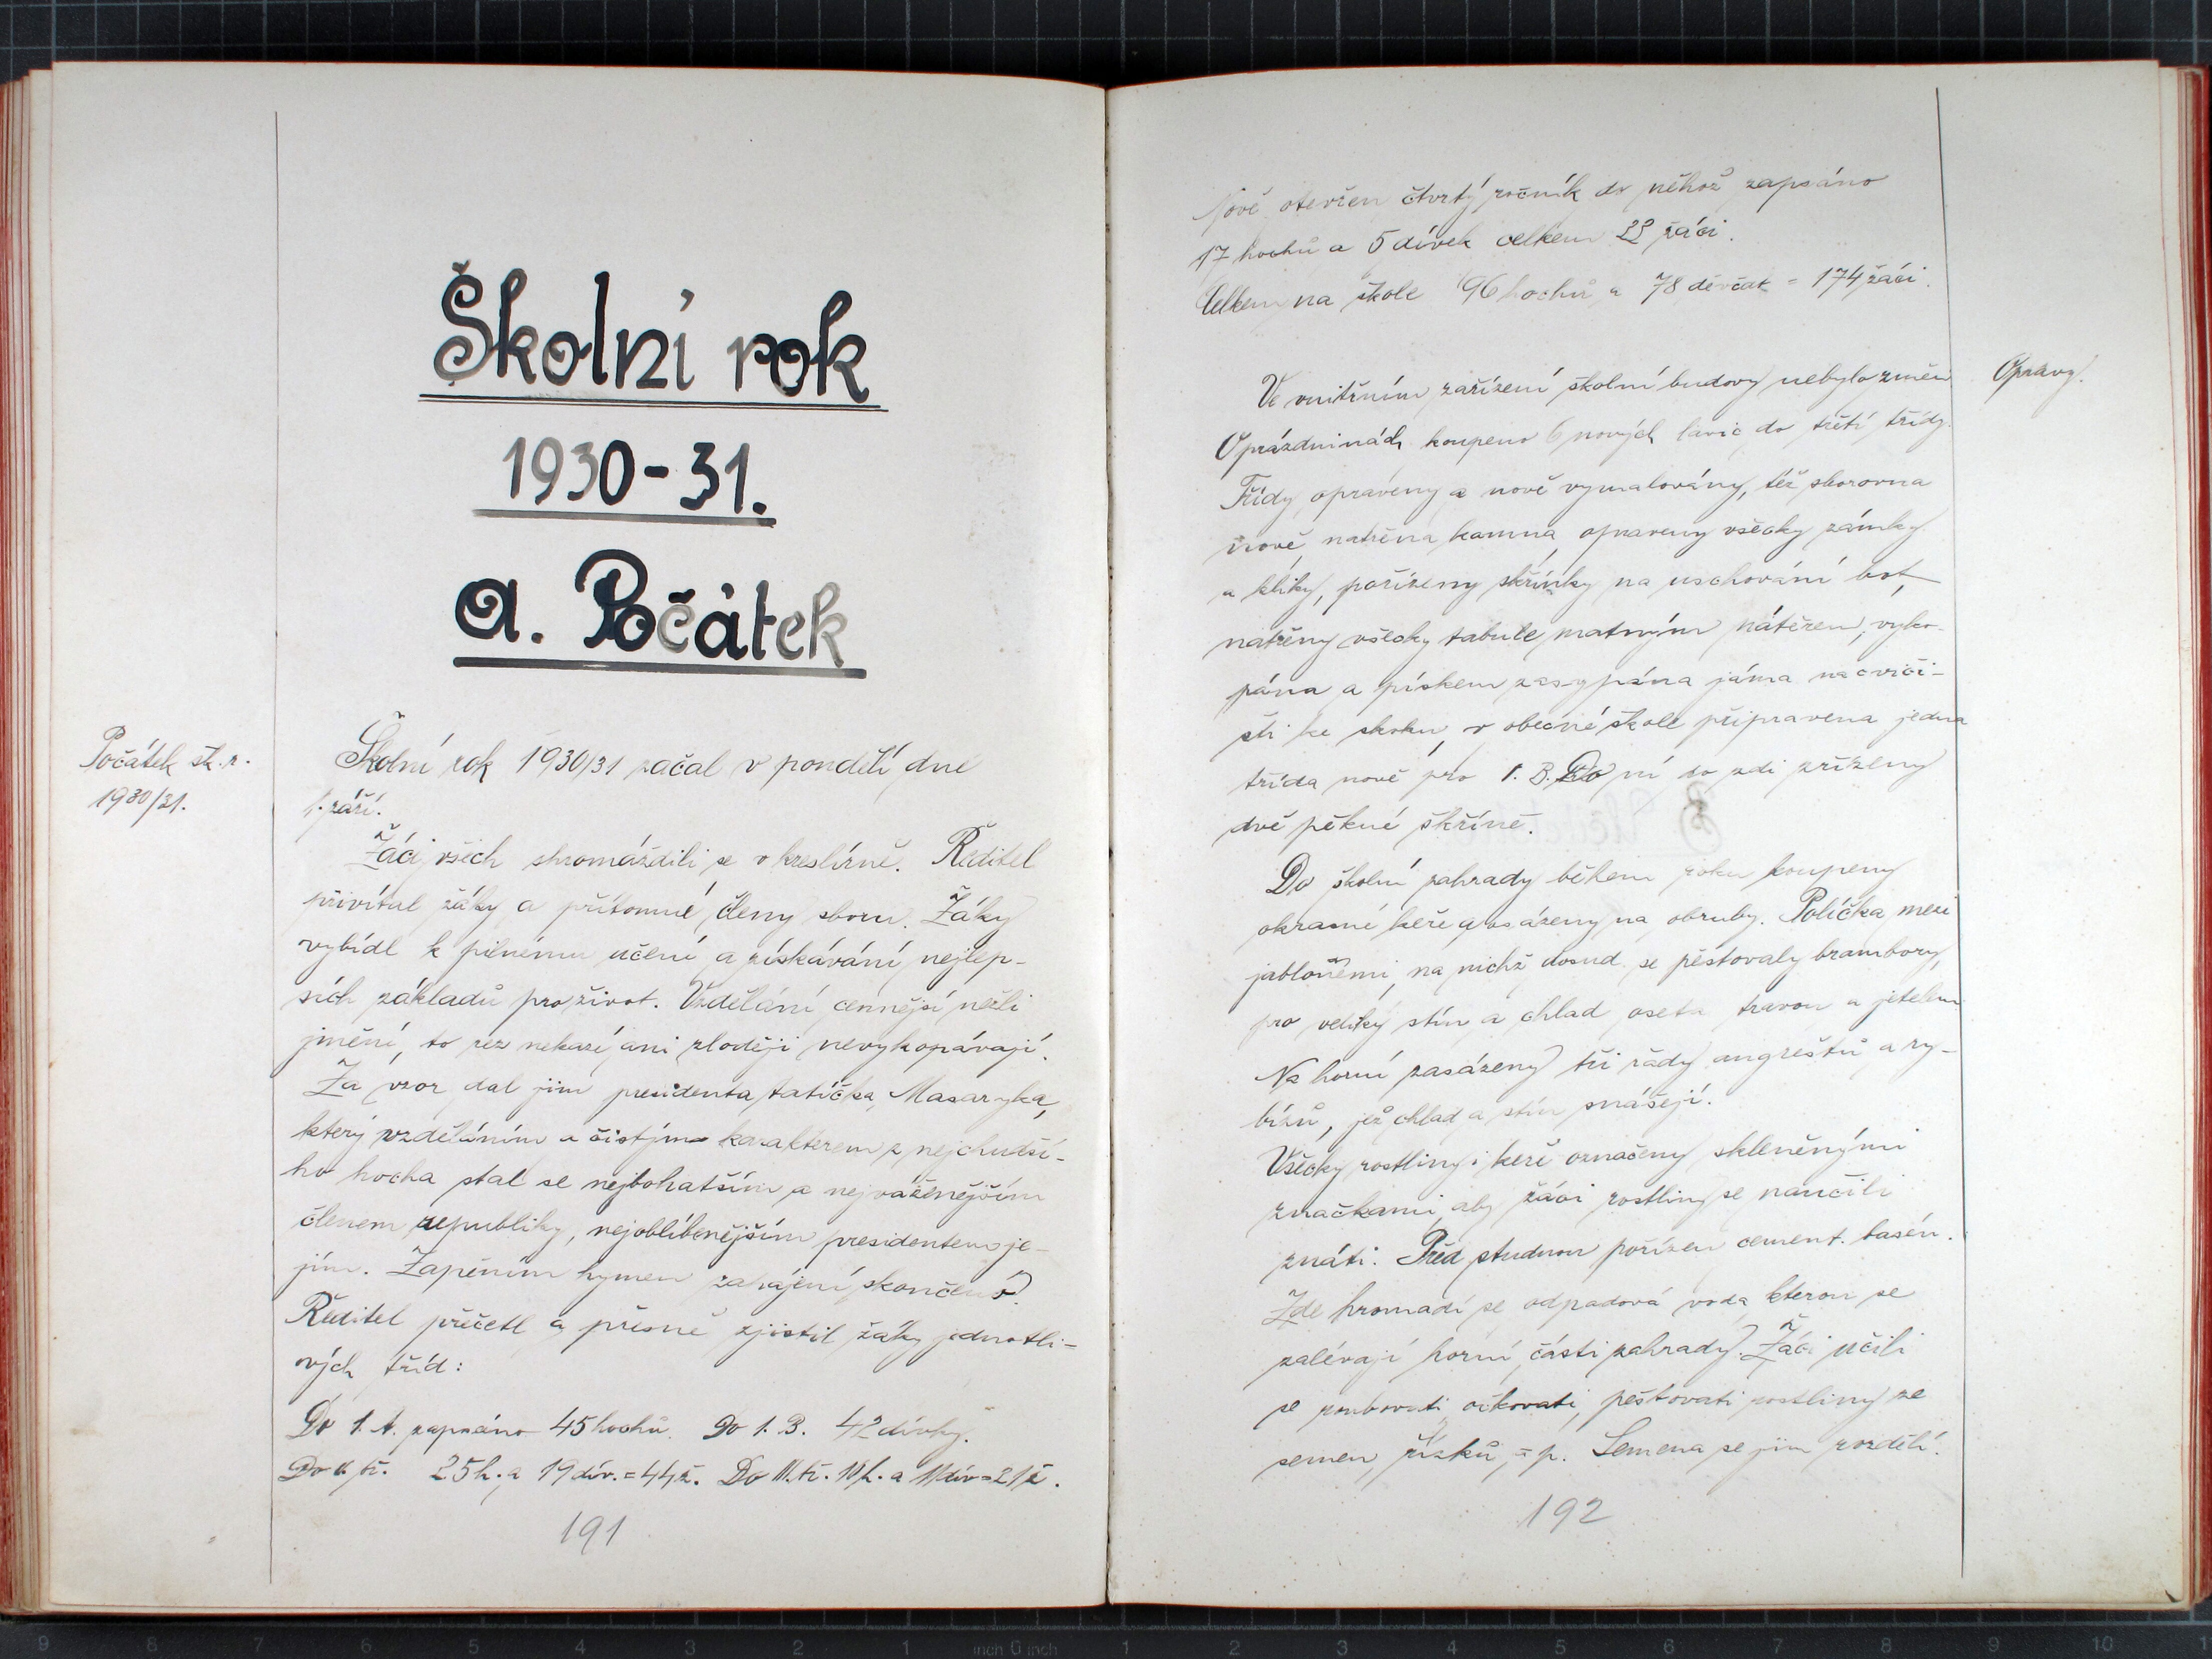 Školní rok
1930-31.
a. Počátek
Počátek šk. r.
1930/31.
Školní rok 1930/31 začal v pondělí dne
1. září.
Žáci všich shromáždili se v kreslírně. Ředitel
přivítal žáky a přítomné členy sboru. Žáky
vybídl k pilnému učení a získávání nejlep-
ších základů pro život. Vzdělání cennější nežli
jmění, to rez nekazí ani zloději nevykopávají.
Za vzor dal jim presidenta tatíčka Masaryka,
který vzděláním a čistým karakterem z nejchudší-
ho hocha stal se nejbohatším a nejváženějším
členem republiky, nejoblíbenějším presidentem je-
jím. Zapěním hymen zahájení skončeno.
Ředitel přečetl a přesně zjistil žáky jednotli-
vých tříd:
Do 1. A. zapsáno 45 hochů. Do 1. B. 42 dívky.
Do II. tř. 25 h. a 19 dív. = 44 ž. Do III. tř. 10 h. a 11 dív = 21 ž.
191
Nově otevřen čtvrtý ročník do něhož zapsáno
17 hochů a 5 dívek celkem 22 žáci.
Celkem na škole 96 hochů a 78 děvčat = 174 žáci.
Opravy.
Ve vnitřním zařízení školní budovy nebylo změn
O prázdninách koupeno 6 nových lavic do třetí třídy.
Třídy opraveny a nově vymalovány, též sborovna
nově natřena kamna, opraveny všecky zámky
a kliky, pořízeny skřínky na uschování bot,
natřeny všecky tabule matným nátěrem, vyko-
pána a pískem zasypána jáma na cviči-
šti ke skoku, v obecné škole připravena jedna
třída nově pro 1. B. Do ní do zdi zřízeny
dvě pěkné skříně.
Do školní zahrady během roku koupeny
okrasné keře a vsázeny na obruby. Políčka mezi
jabloněmi, na nichž dosud se pěstovaly brambory,
pro veliký stín a chlad oseta travou a jetelem
Na horní zasázeny tři řady angreštů a ry-
bízů, jež chlad a stín snášejí.
Všecky rostliny i keře označeny skleněnými
značkami, aby žáci rostliny se naučili
znáti. Před studnou pořízen cement. basén.
Zde hromadí se odpadová voda kterou se
zalévají horní části zahrady. Žáci učili
se roubovati, očkovati, pěstovati rostliny ze
semen, řízků, a p. Semena se jim rozdělí.
192